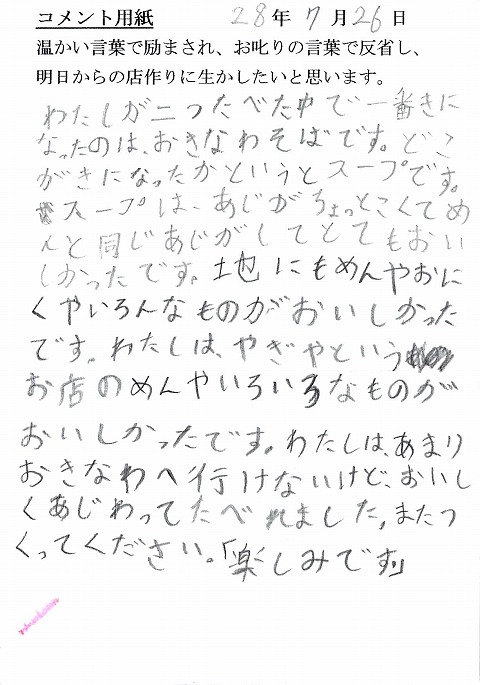 コメント用紙 28年7月26日
温かい言葉で励まされ、お叱りの言葉で反省し、
明日からの店作りに生かしたいと思います。
わたしが二つたべた中で一番きに
なったのは、おきなわそばです。どこ
がきになったかというとスープです。
スープは、あじがちょっとこくてめ
んと同じあじがしてとてもおい
しかったです。地にもめんやおに
くやいろんなものがおいしかった
です。わたしは、やぎやという
お店のめんやいろいろなものが
おいしかったです。わたしは、あまり
おきなわへ行けないけど、おいし
くあじわってたべれました。またつ
くってください。「楽しみです」